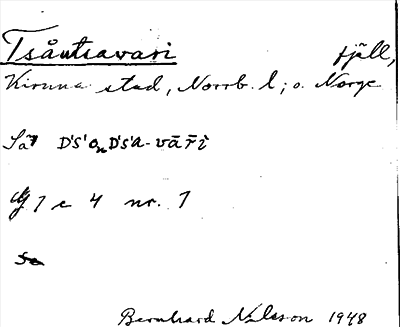 Tsåutsavari fjäll,
Kiruna stad, Norrb. l; o. Norge
D's'onD's'a-vāři
1 c 4 nr. 1
Bernhard Nilsson 1948